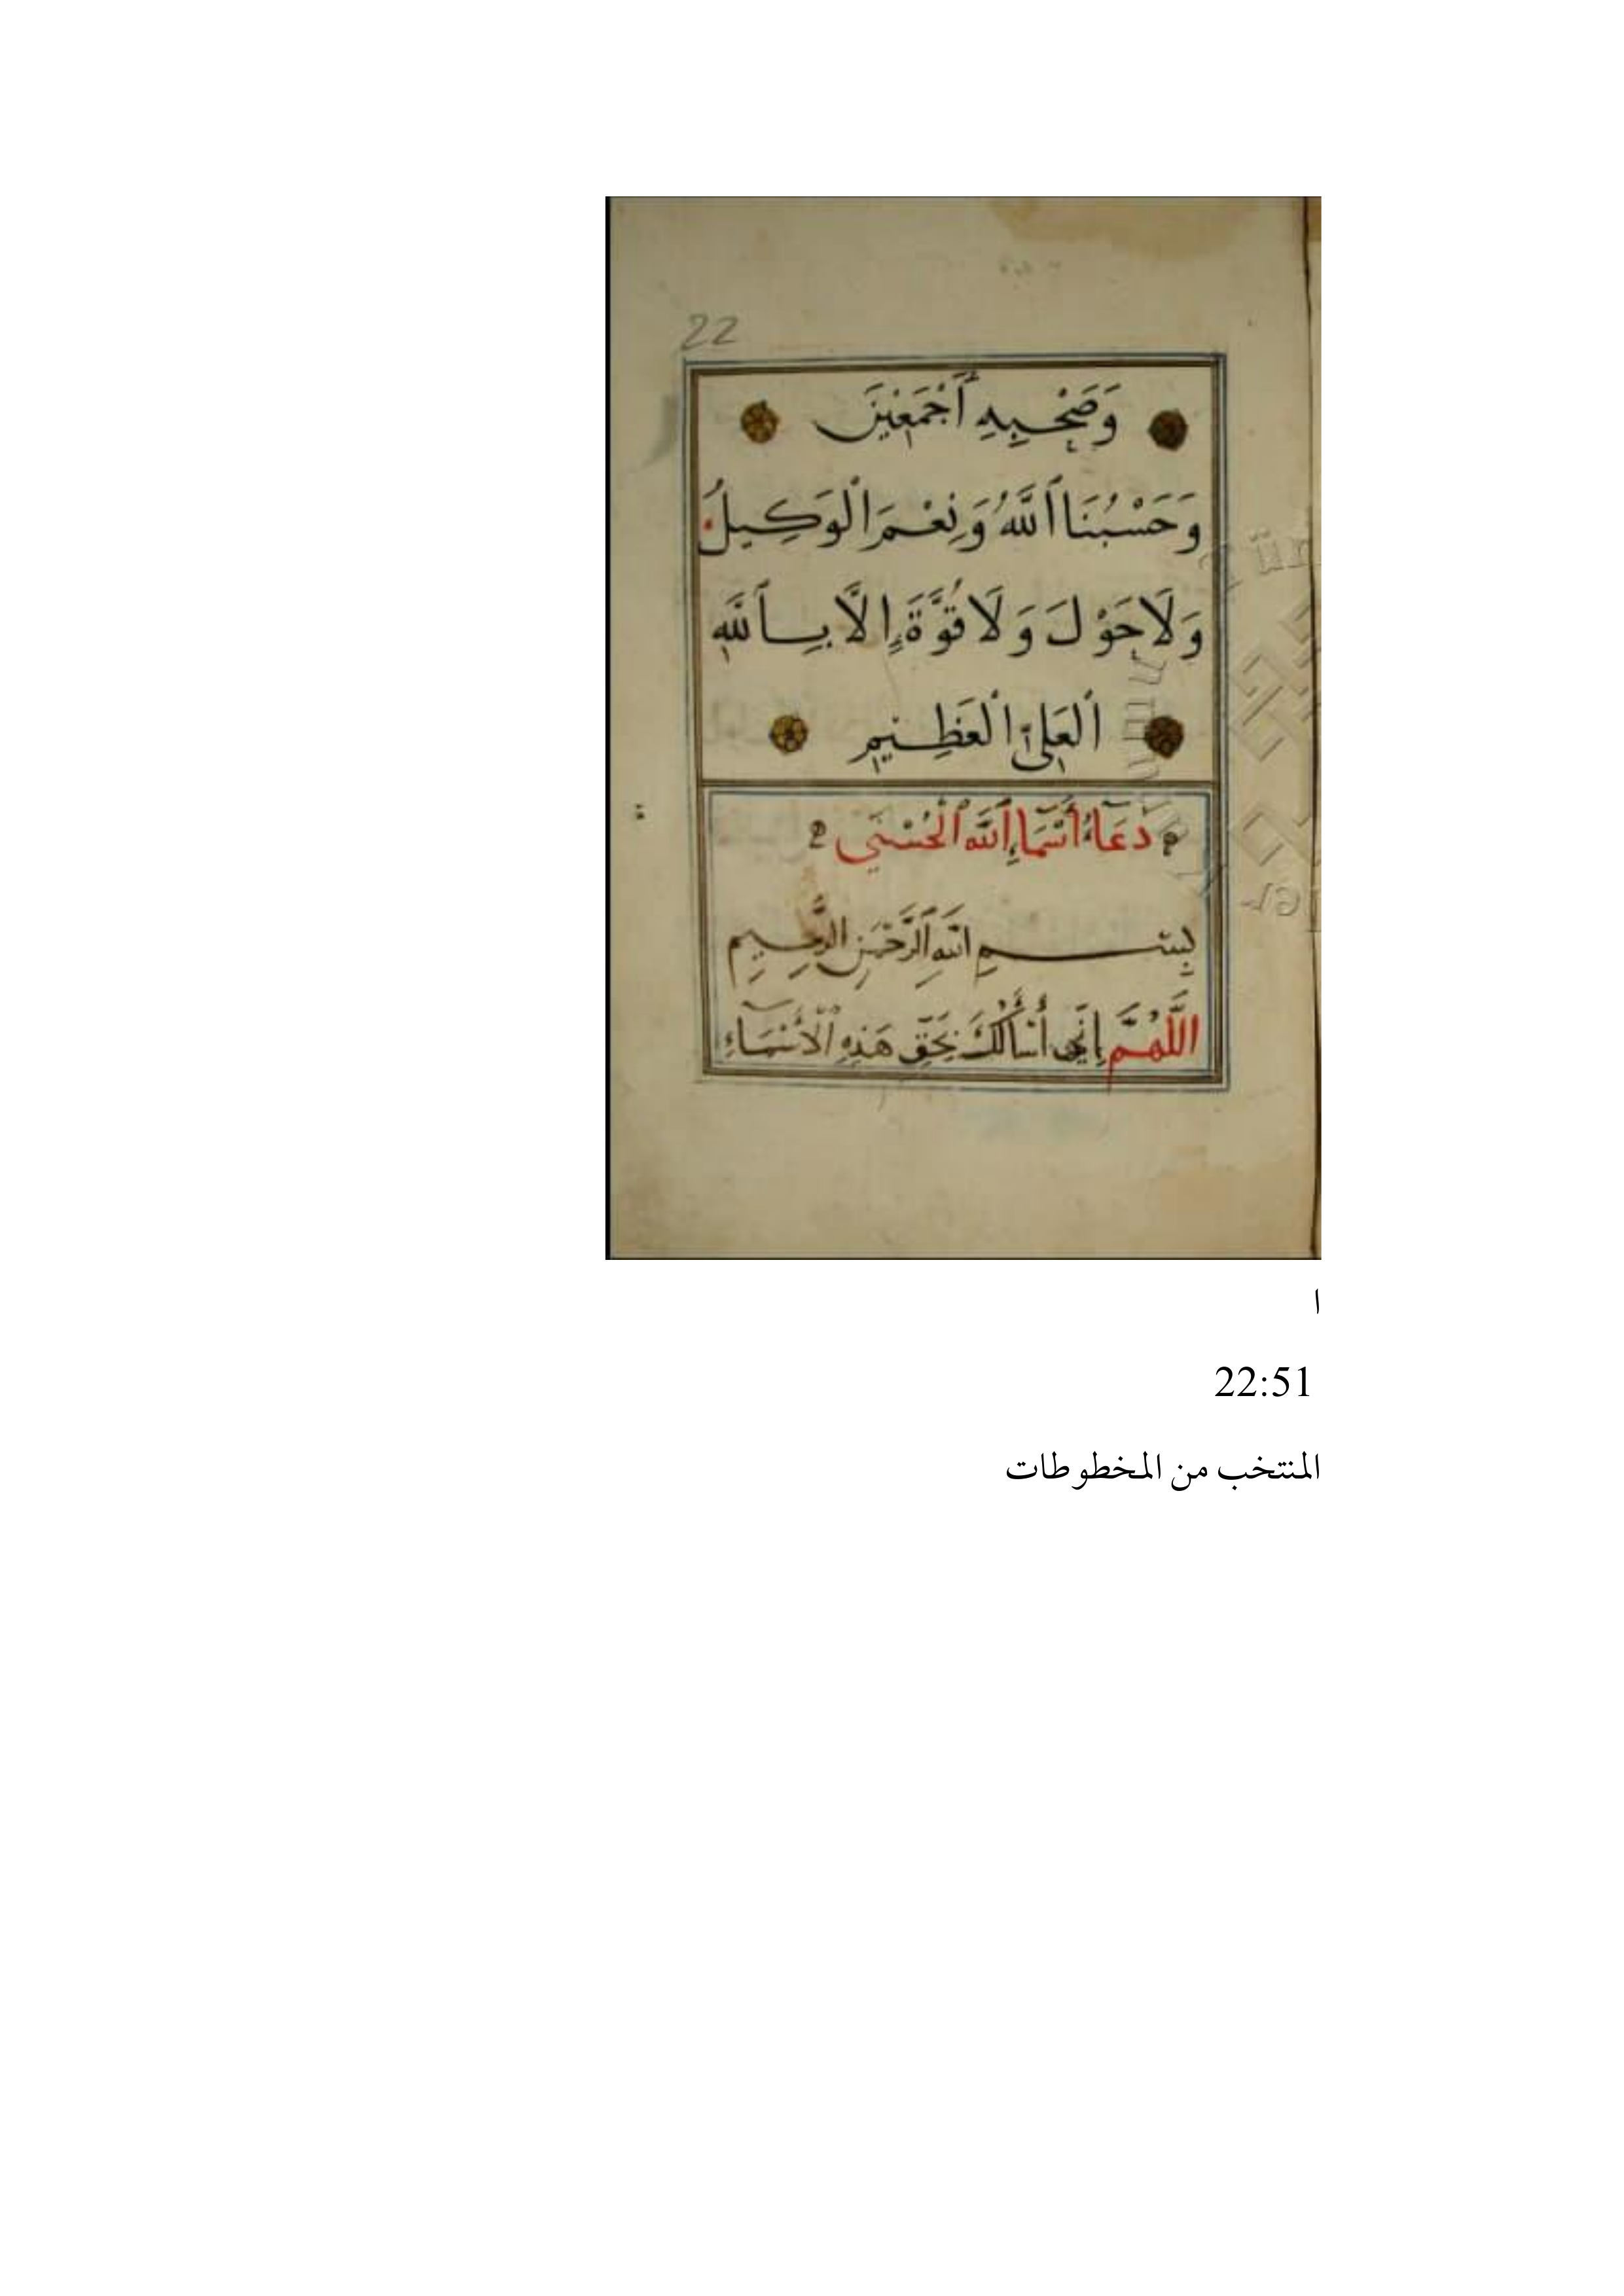 22
وَصَحْبِهِ أَجْمَعِينَ
وَحَسْبُنَا ٱللَّهُ وَنِعْمَ ٱلْوَكِيلُ
وَلَا حَوْلَ وَلَا قُوَّةَ إِلَّا بِٱللَّهِ
ٱلْعَلِيِّ ٱلْعَظِيمِ
دُعَاءُ أَسْمَاءِ ٱللَّهِ ٱلْحُسْنَى
بِسْمِ اللَّهِ ٱلرَّحْمَنِ الرَّحِيمِ
اللَّهُمَّ إِنِّي أَسْأَلُكَ بِحَقِّ هَذِهِ ٱلْأَسْمَآءِ
ا
22:51
المنتخب من المخطوطات